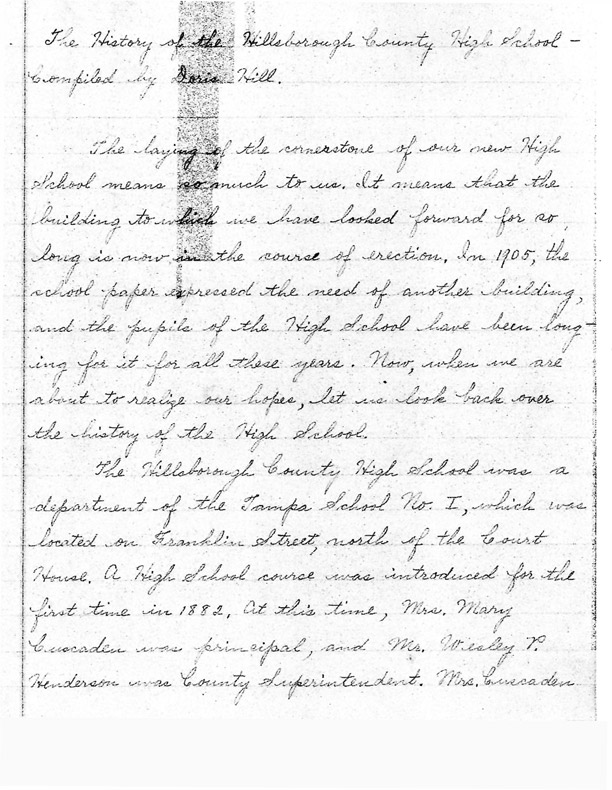 The History of the Hillsborough County High School -
Compiled by Doris Hill.
The laying of the cornerstone of our new High
School means so much to us. It means that the
building to which we have looked forward for so
long is now in the course of erection. In 1905, the
school paper expressed the need of another building,
and the pupils of the High School have been long-
ing for it for all these years. Now, when we are
about to realize our hopes, let us look back over
the history of the High School.
The Hillsborough County High School was a
department of the Tampa School No. I, which was
located on Franklin Street, north of the Court
House. A High School course was introduced for the
first time in 1882. At this time, Mrs. Mary
Cuscaden was principal, and Mr. Wesley P.
Henderson was County Superintendent. Mrs. Cuscaden